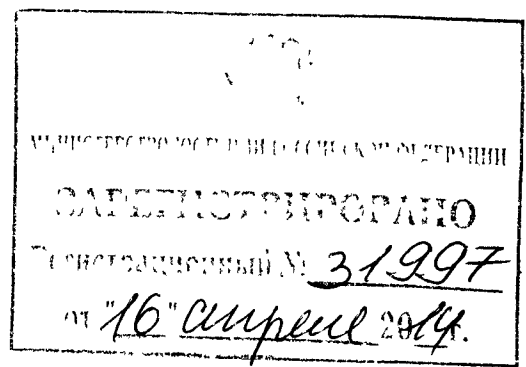 МИНИСТЕРСТВО ЮСТИЦИИ РОССИЙСКОЙ ФЕДЕРАЦИИ
ЗАРЕГИСТРИРОВАНО
Регистрационный № 31997
от "16" апреля 2014г.